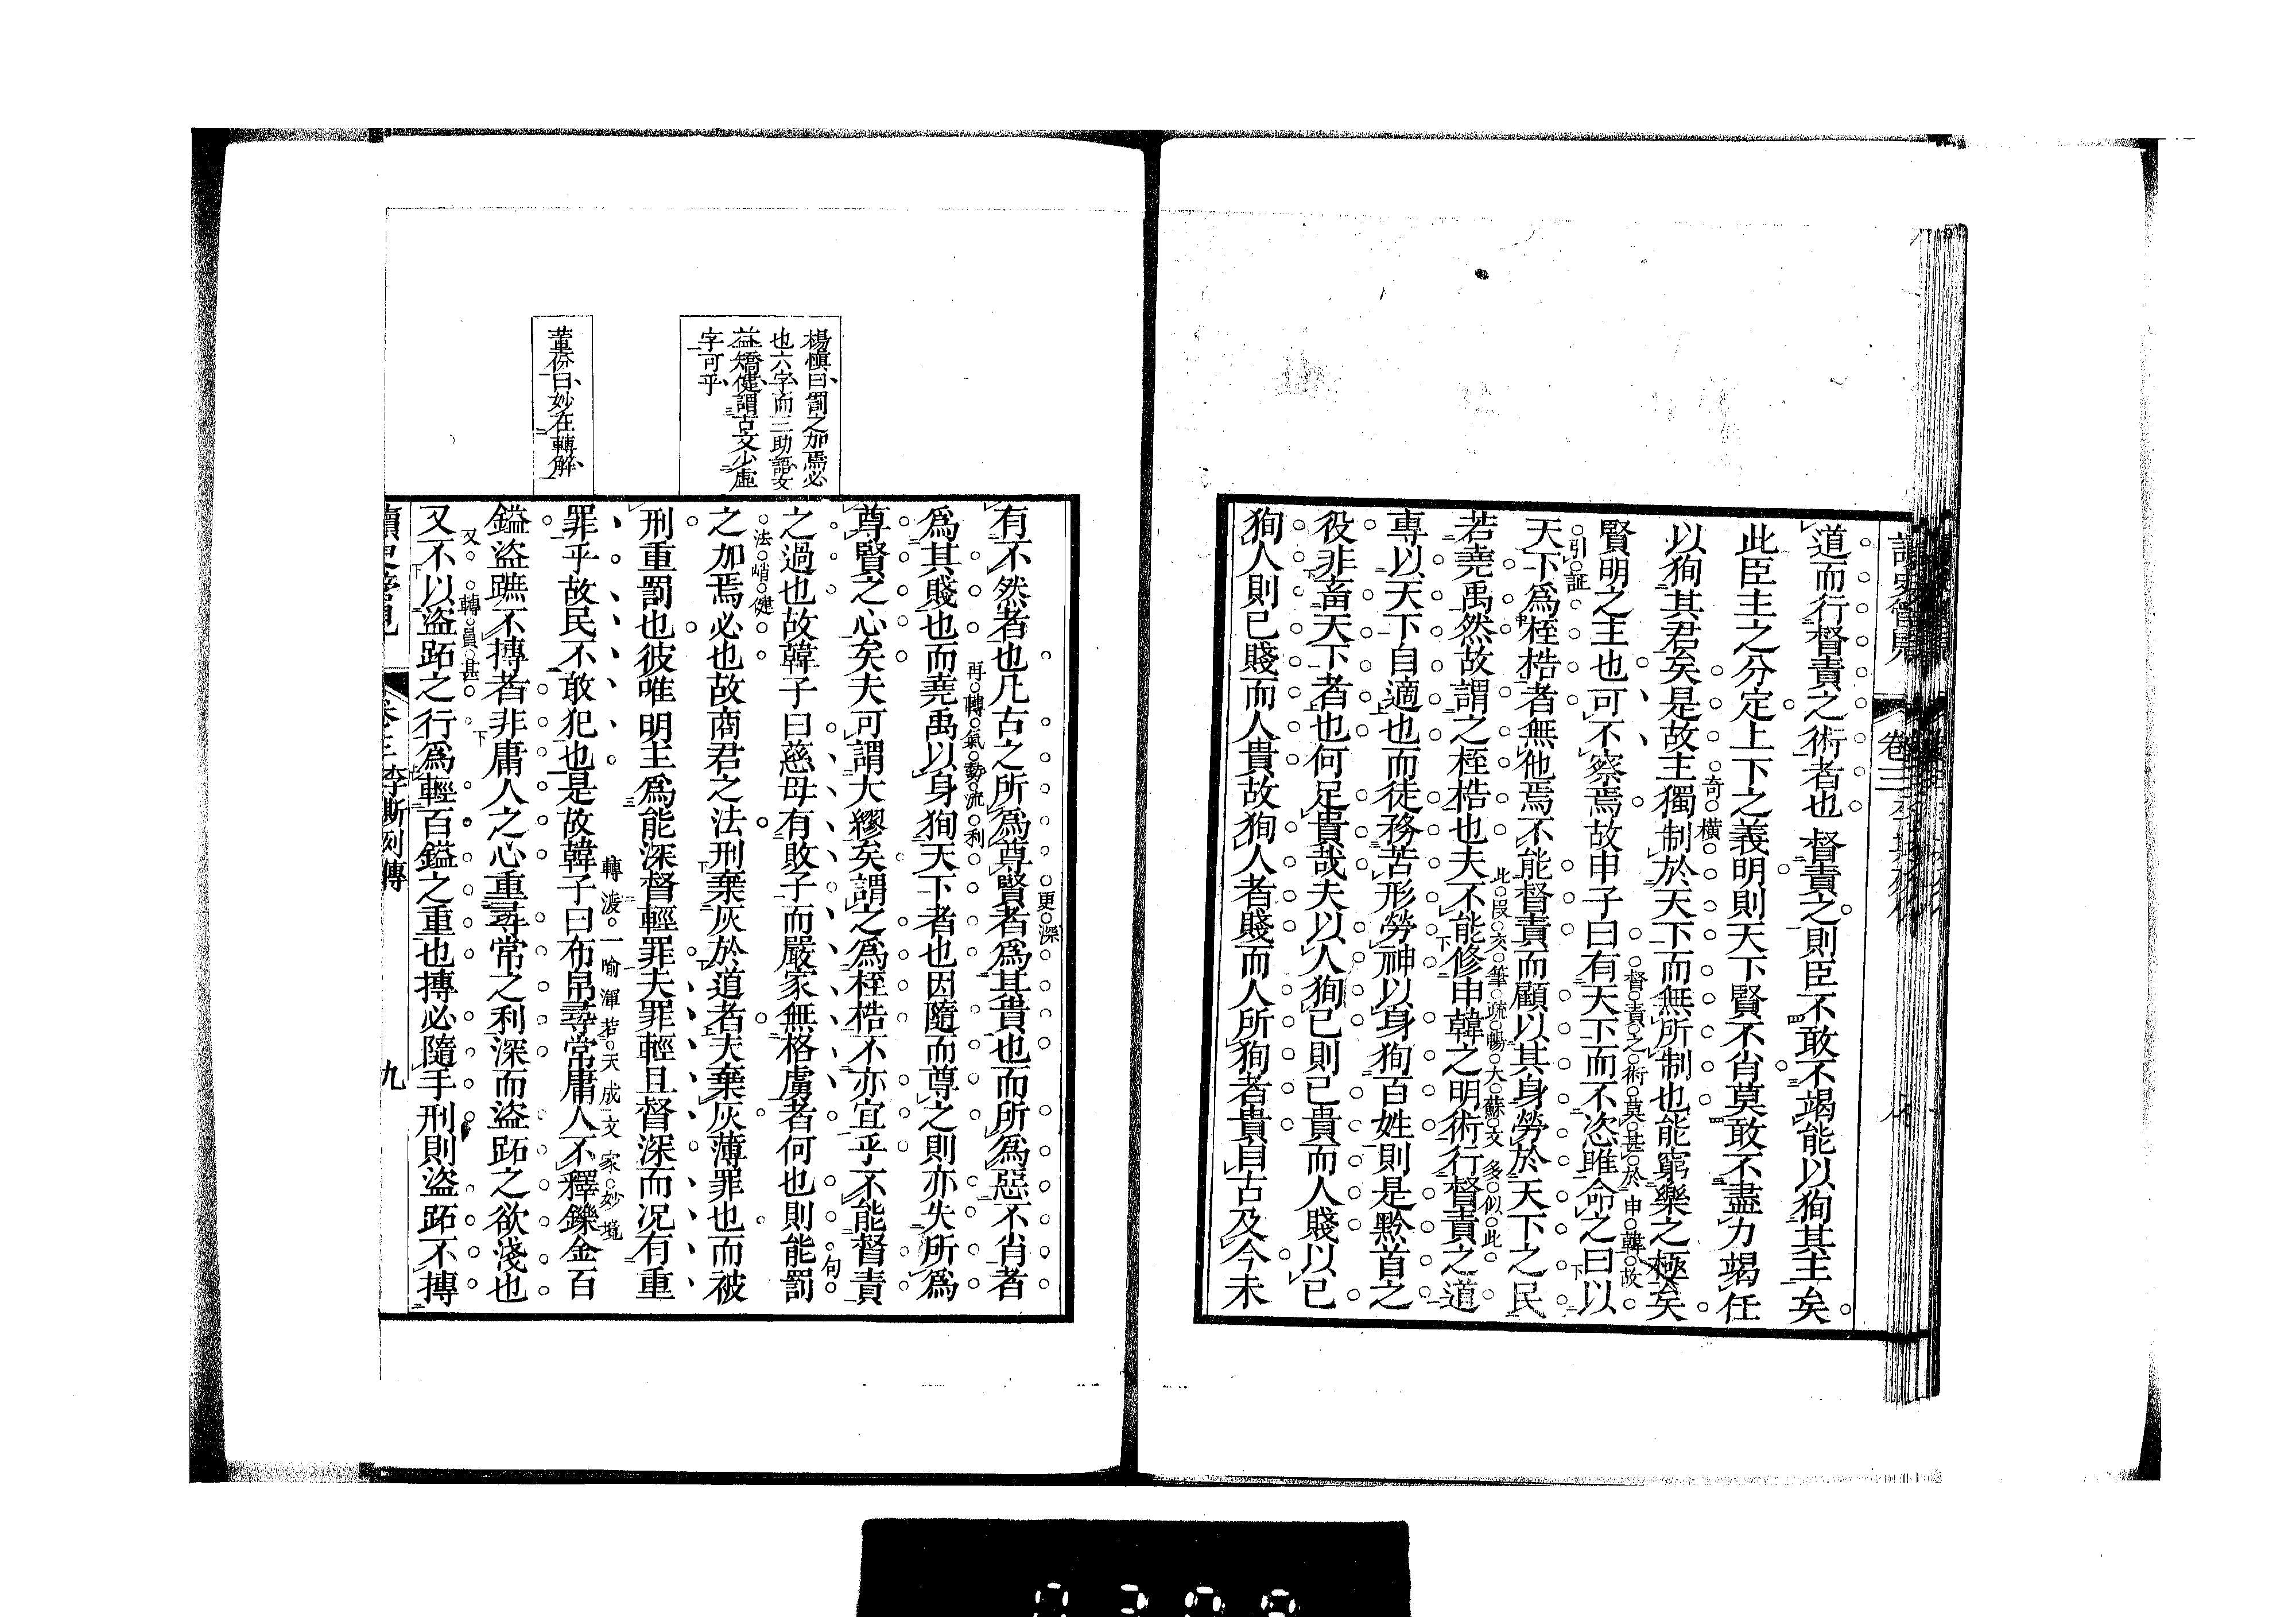 道而行督責之術者也督責之則臣不敢不竭能以狥其主矣
此臣主之分定上下之義明則天下賢不肖莫敢不盡力竭任
以狥其君矣是故主獨制於天下而無所制也能窮樂之極矣
奇橫
賢明之主也可不察焉故申子曰有天下而不恣雎命之曰以
督責之術莫甚於申韓故
引証
天下爲桎梏者無他焉不能督責而顧以其身勞於天下之民
若堯禹然故謂之桎梏也夫不能修申韓之明術行督責之道
此段亥筆疏暢大蘇文多似此
專以天下自適也而徒務苦形勞神以身狥百姓則是黔首之
役非畜天下者也何足貴哉夫以人狥己則己貴而人賤以己
狥人則己賤而人貴故狥人者賤而人所狥者貴自古及今未
卷三
有不然者也凡古之所爲尊賢者爲其貴也而所爲惡不肖者
更深
爲其賤也而堯禹以身狥天下者也因隨而尊之則亦失所爲
再轉氣勢流利
尊賢之心矣夫可謂大繆矣謂之爲桎梏不亦宜乎不能督責
之過也故韓子曰慈母有敗子而嚴家無格虜者何也則能罰
句
之加焉必也故商君之法刑棄灰於道者夫棄灰薄罪也而被
法峭健
刑重罰也彼唯明主爲能深督輕罪夫罪輕且督深而况有重
罪乎故民不敢犯也是故韓子曰布帛尋常庸人不釋鑠金百
轉渡一喻渾若天成文家妙境
鎰盜蹠不搏者非庸人之心重尋常之利深而盜跖之欲淺也
又不以盜跖之行爲輕百鎰之重也搏必隨手刑則盜跖不搏
又轉員甚
楊愼曰罰之加焉必
也六字而三助語文
益矯健謂古文少虛
字可乎
董份曰妙在轉解
讀史管見 卷三 李斯列傳 九